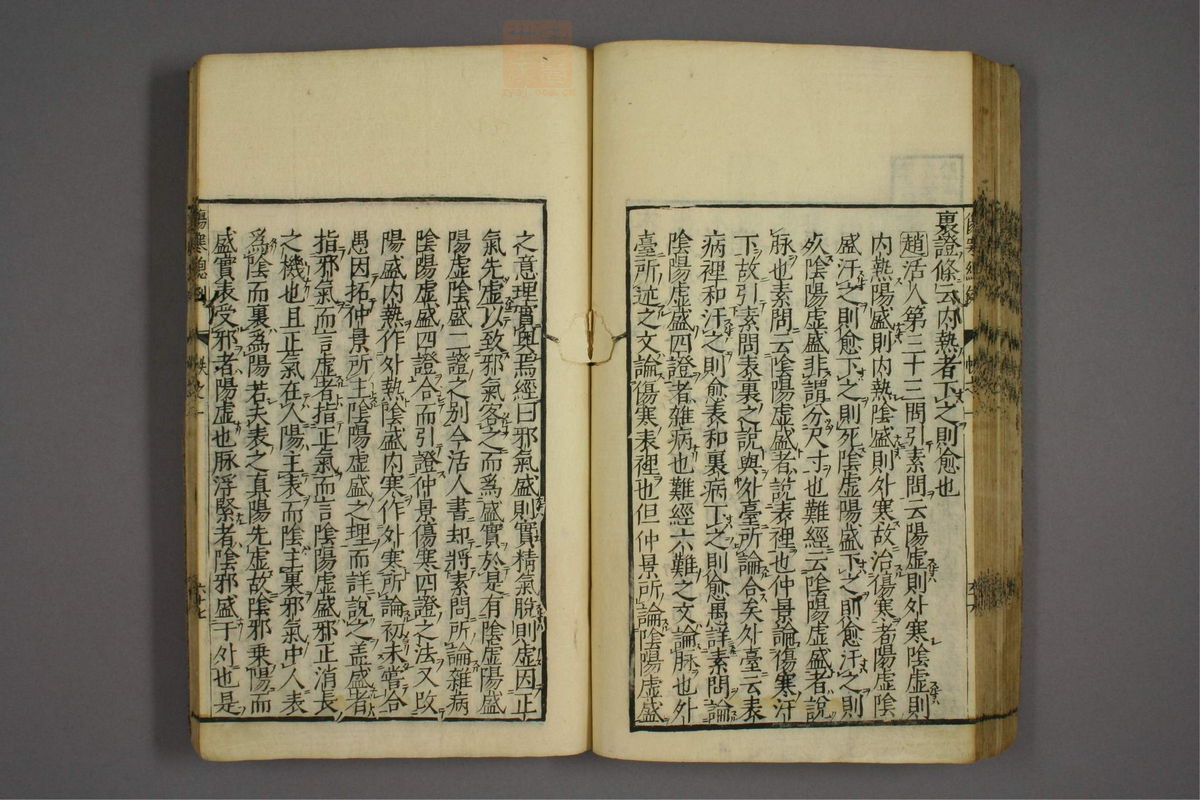 裏證條云内熱者下之則愈也
趙活人第三十三問引素問云陽虛則外寒陰虛則
内熱陽盛則内熱陰盛則外寒故治傷寒者陽虛陰
盛汗之則愈下之則死陰虛陽盛下之則愈汗之則
死陰陽虛盛非謂分尺寸也難經云陰陽虛盛者說
脉也素問云陰陽虛盛者說表裡也仲景論傷寒汗
下故引素問表裏之說與外臺所論合矣外臺云表
病裡和汗之則愈表和裏病下之則愈愚詳素問論
陰陽虛盛四證者雜病也難經六難之文論脉也外
臺所述之文論傷寒表裡也但仲景所論陰陽虛盛
之意理實奧焉經曰邪氣盛則實精氣脫則虛因正
氣先虛以致邪氣客之而爲盛實於是有陰虛陽盛
陽虛陰盛二證之别今活人書却將素問所論雜病
陰陽虛盛四證合而引證仲景傷寒四證之法又改
陽盛内熱作外熱陰盛内寒作外寒所論初未嘗合
愚因拓仲景所主陰陽虛盛之理而詳說之盖盛者
指邪氣而言虛者指正氣而言陰陽虛盛邪正消長
之機也且正氣在人陽主表而陰主裏邪氣中人表
爲陰而裏爲陽若夫表之真陽先虛故陰邪乗陽而
盛實表受邪者陽虛也脉浮緊者陰邪盛于外也是